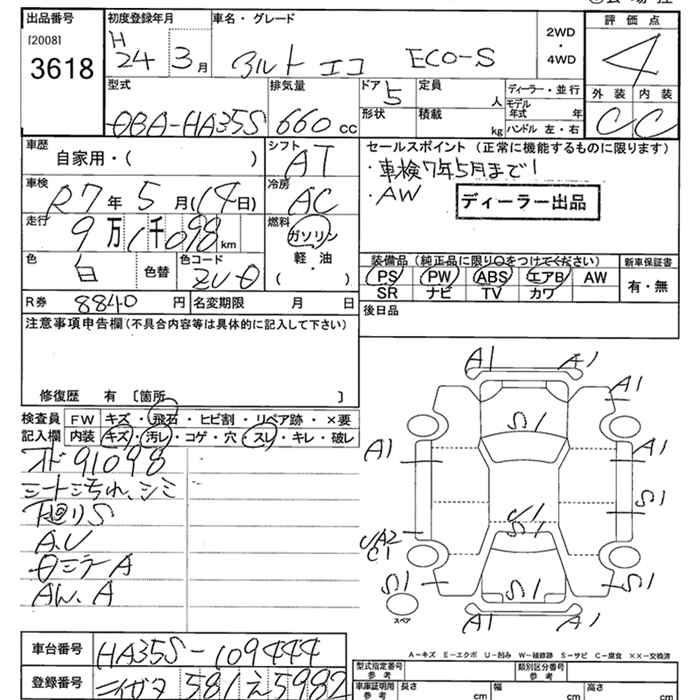 出品番号 初度登録年月 車名・グレード 評価点
[2008] H 2WD
3618 24 3月 アルト エコ ECO-S ・ 4
4WD
型式 排気量 ドア 5 定員 人 ディーラー・並行 外装 内装
DBA-HA35S 660 cc 形状 積載 kg モデル年式 年 C C
ハンドル 左・右
車歴 シフト セールスポイント (正常に機能するものに限ります)
自家用・( ) AT ・車検7年5月まで!
車検 冷房 ・AW
R7年5月(14日) AC ディーラー出品
走行 燃料
9万1千098km ガソリン
軽・油
( ・ )
色 色替 色コード 装備品 (純正品に限り○をつけてください) 新車保証書
白 ZU0 PS PW ABS エアB AW 有・無
SR ナビ TV カワ
R券 8840円 名変期限 月 日 後日品
注意事項申告欄(不具合内容等は具体的に記入して下さい)
修復歴 有 〔箇所 〕
検査員 FW キズ・飛石・ヒビ割・リペア跡・×要
記入欄 内装 キズ・汚レ・コゲ・穴・スレ・キレ・破レ
オド91098
シート汚れ、シミ
下廻りS
A.U
ミラーA
AW.A
A1 A1
A1
S1
A1 A1
S1
U1
S1
UA2
C1
S1 S1 S1
スペア
A1 A1
A-キズ E-エクボ U-凹み W-補修跡 S-サビ C-腐食 ××-交換済
車台番号 HA35S-109444
登録番号 581 え 5982
型式指定番号 参考 類別区分番号 参考
車庫証明用 参考 長さ cm 幅 cm 高さ cm